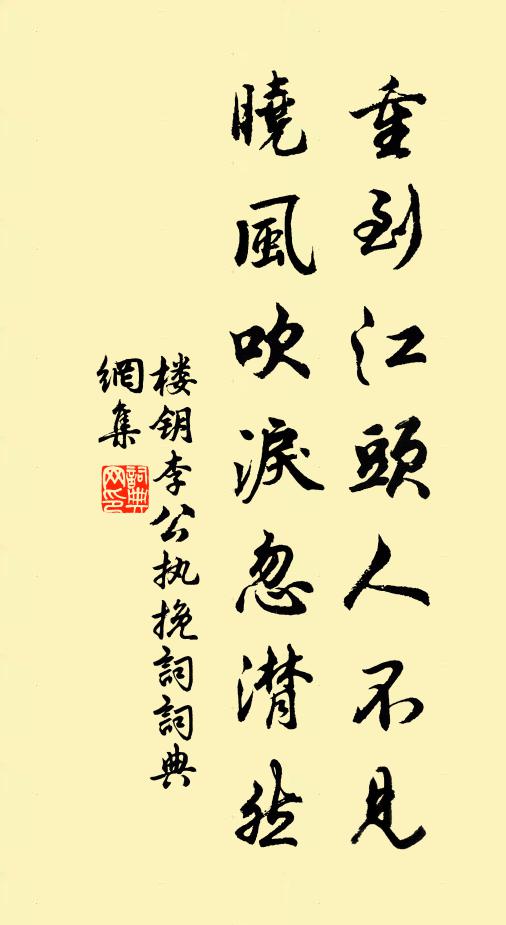 重到江頭人不見
曉風吹淚忽潸然
楼钥李公执挽詞詞典
網集
詞典網印